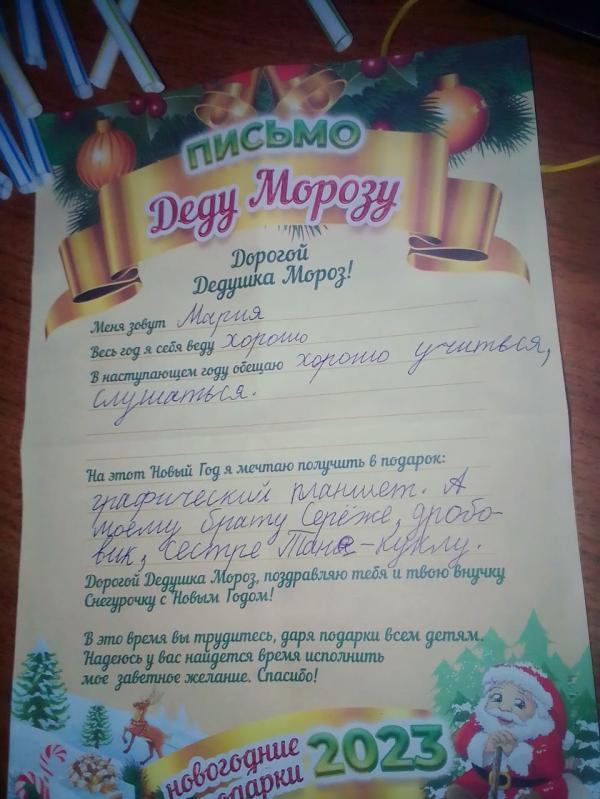 ПИСЬМО
Деду Морозу
Дорогой
Дедушка Мороз!
Меня зовут Мария
Весь год я себя веду хорошо
В наступающем году обещаю хорошо учиться,
слушаться.
На этот Новый Год я мечтаю получить в подарок:
графический планшет. А
моему брату Серёже, дробо-
вик, сестре Тане-куклу.
Дорогой Дедушка Мороз, поздравляю тебя и твою внучку
Снегурочку с Новым Годом!
В это время вы трудитесь, даря подарки всем детям.
Надеюсь у вас найдется время исполнить
мое заветное желание. Спасибо!
новогодние
подарки 2023